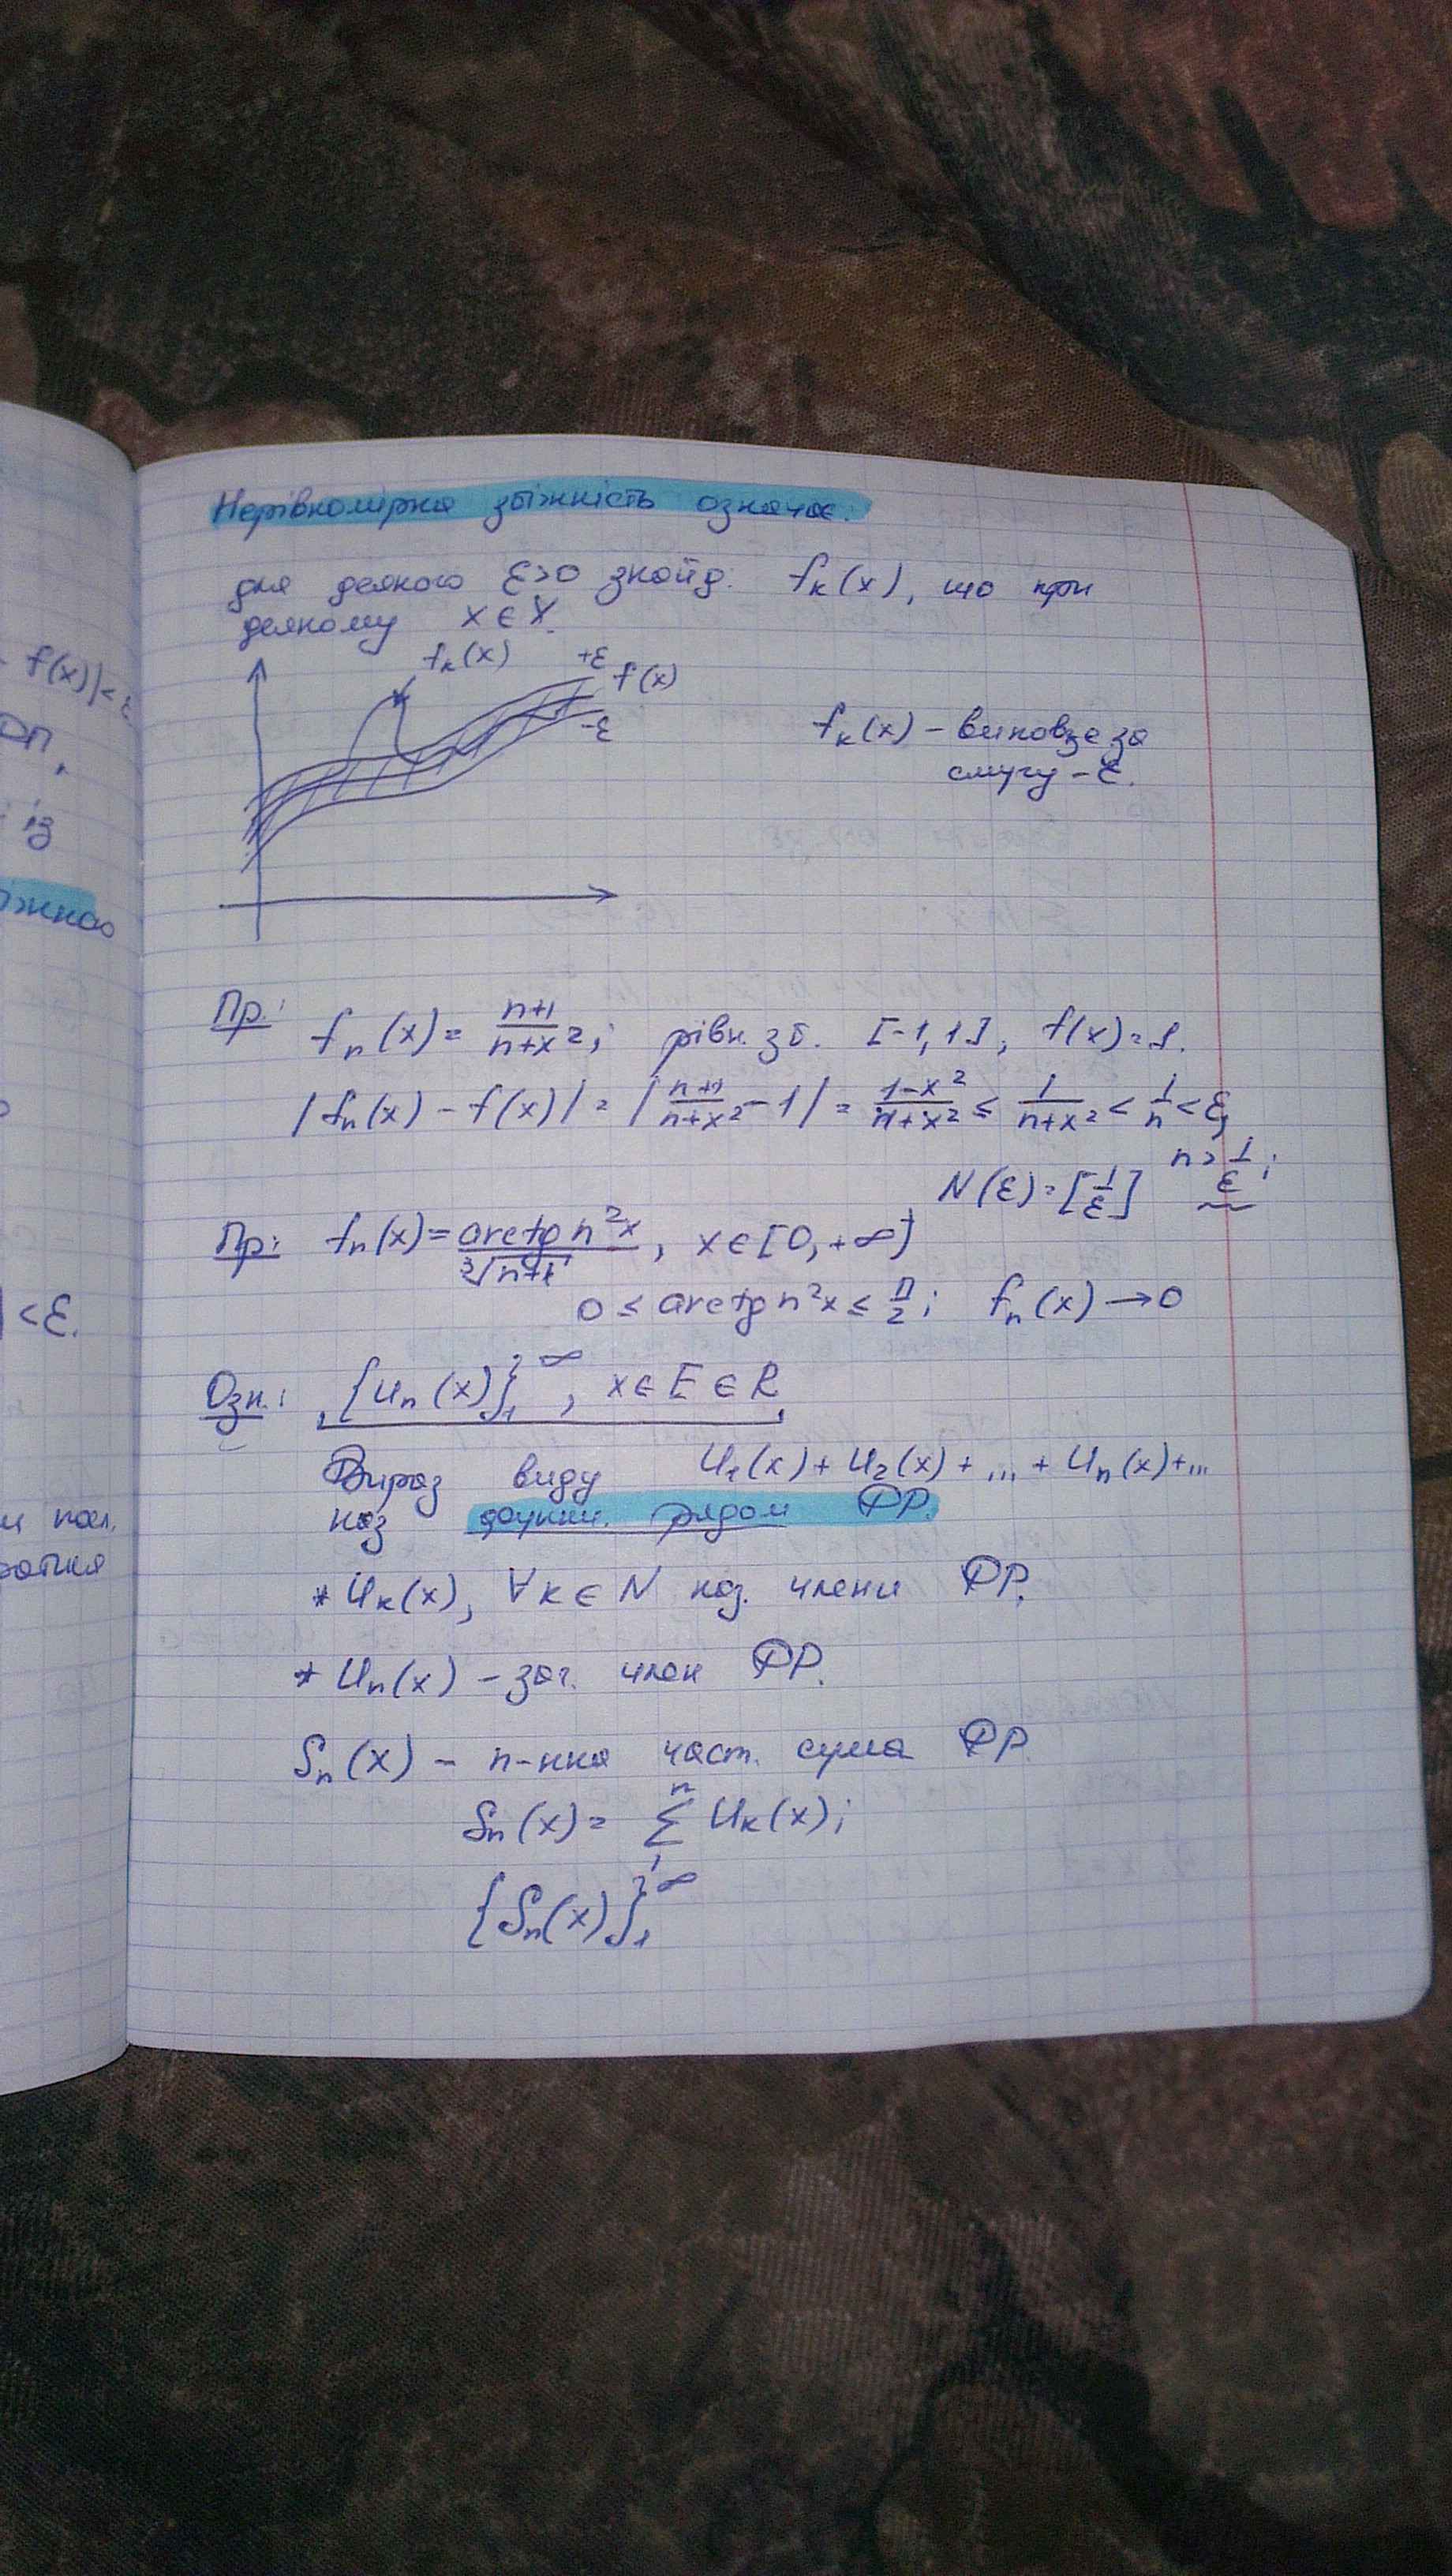 - f(x)|<ε
ФП,
із
жною
| <ε.
Нерівномірна збіжність означає:
для деякого ε>0 знайд. fₖ(x), що при
деякому x∈X.
fₖ(x) +ε f(x)
-ε
fₖ(x) – виповзе за
смугу – ε.
Пр: fₙ(x) = (n+1)/(n+x²); рівн. зб. [-1,1], f(x)=1.
|fₙ(x) - f(x)| = |(n+1)/(n+x²) - 1| = (1-x²)/(n+x²) ≤ 1/(n+x²) < 1/n < ε,
n > 1/ε;
N(ε) = [1/ε]
Пр: fₙ(x) = arctg n²x / ³√(n+1), x∈[0,+∞)
0 ≤ arctg n²x ≤ π/2; fₙ(x) → 0
Озн: {uₙ(x)}₁^∞, x∈E∈R,
Вираз виду u₁(x) + u₂(x) + ... + uₙ(x)+...
наз функц. рядом ФР.
* uₖ(x), ∀k∈N наз. члени ФР.
* uₙ(x) – заг. член ФР.
Sₙ(x) – n-нна част. сума ФР
Sₙ(x) = Σ₁ⁿ uₖ(x);
{Sₙ(x)}₁^∞